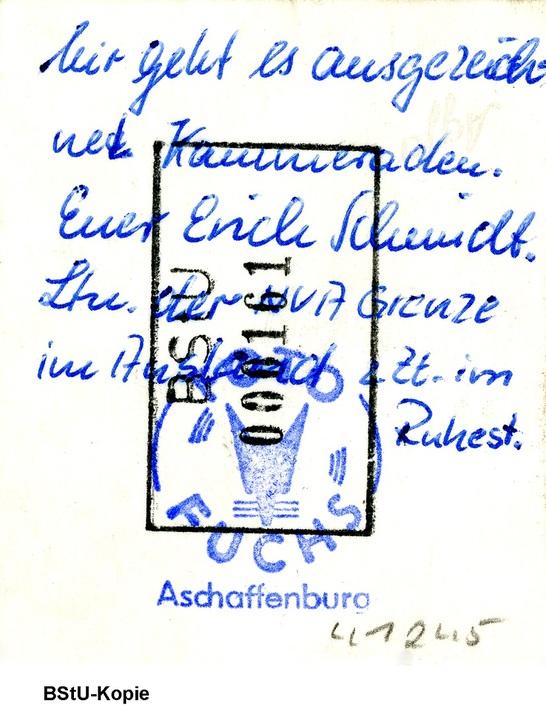 Mir geht es ausgezeich
net Kammeraden.
Euer Erich Schmidt.
Ltn. der NVA Grenze
im Ausland z.Zt. im
Ruhest.
BStU
000161
FOTO
FUCHS
Aschaffenburg
41245
BStU-Kopie